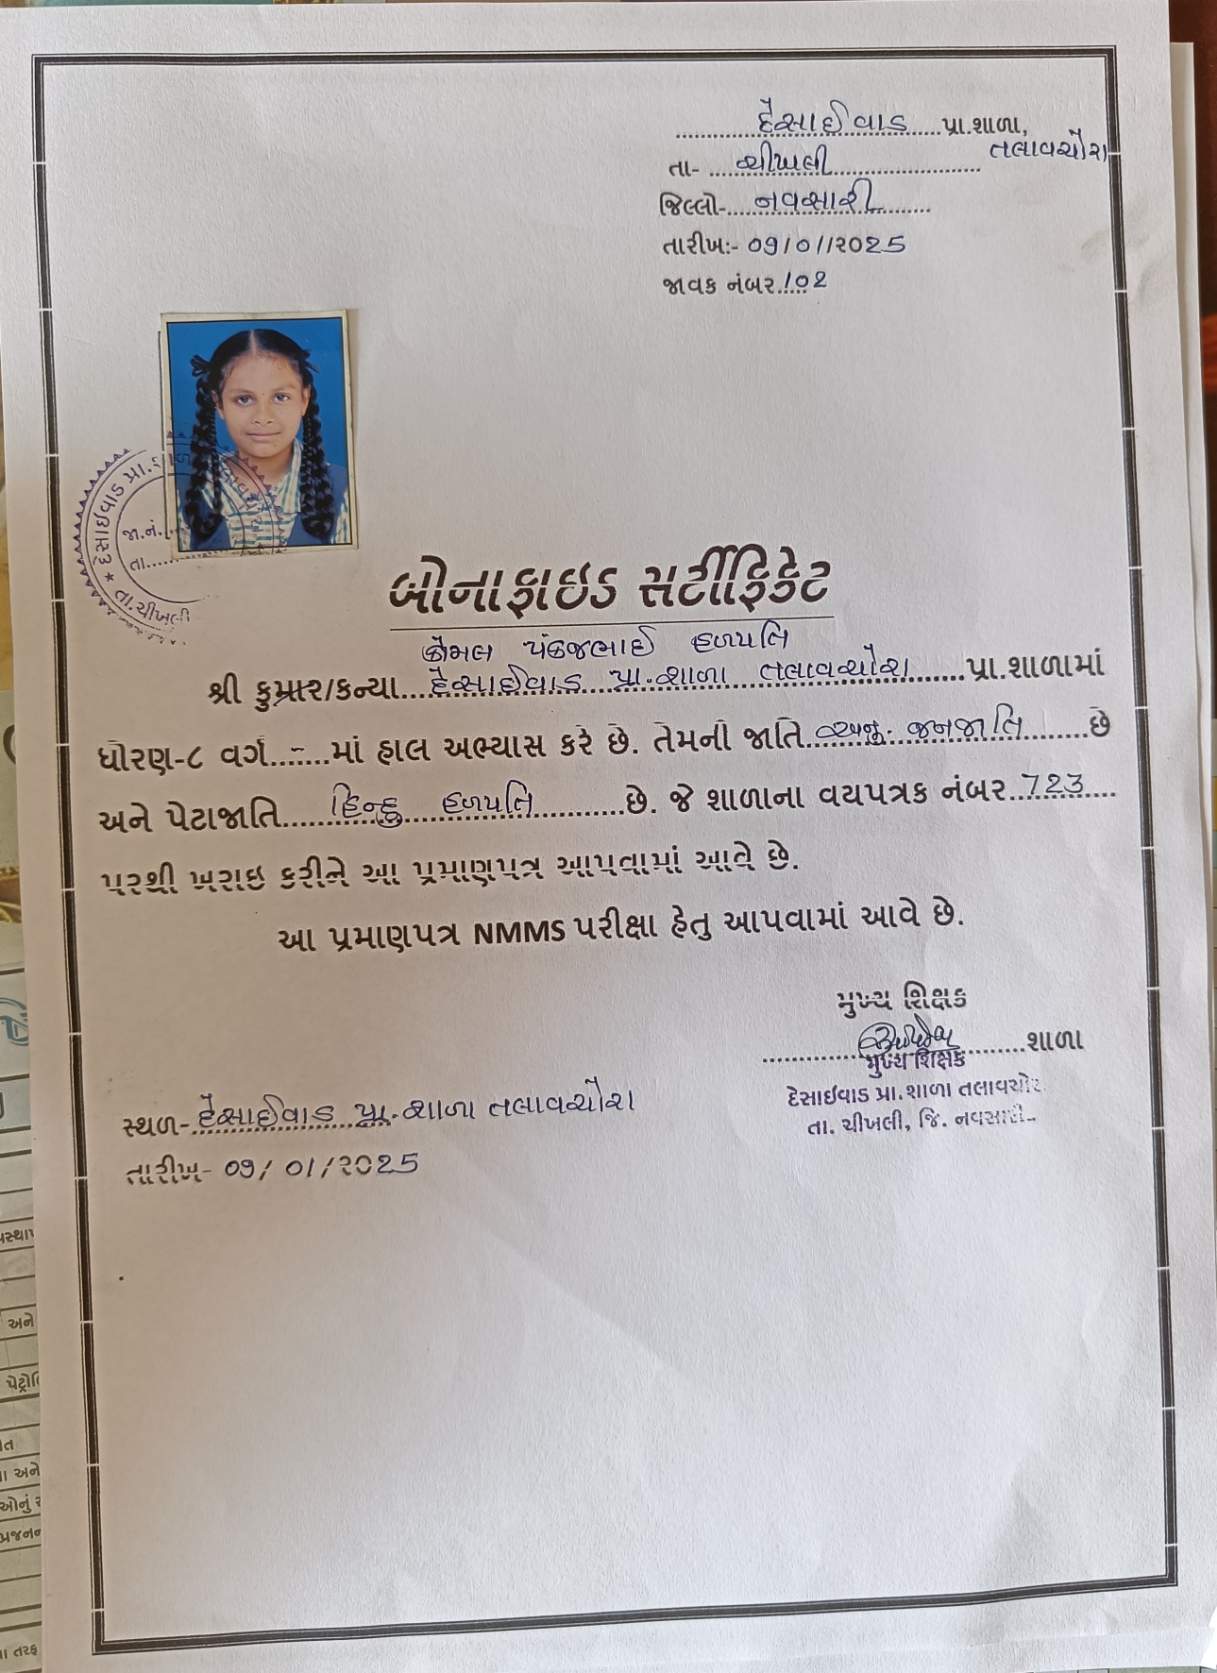 દેસાઈવાડ પ્રા.શાળા,
તલાવચોરા
તા- ચીખલી
જિલ્લો- નવસારી
તારીખ:- 09/01/2025
જાવક નંબર 102
દેસાઈવાડ પ્રા.
જા.નં.
તા.
તા.ચીખલી
બોનાફાઇડ સર્ટીફિકેટ
કોમલ પંકજભાઈ હળપતિ
શ્રી કુમાર/કન્યા દેસાઈવાડ પ્રા.શાળા તલાવચોરા પ્રા.શાળામાં
ધોરણ-૮ વર્ગ.--.માં હાલ અભ્યાસ કરે છે. તેમની જાતિ અનુ. જનજાતિ છે
અને પેટાજાતિ હિન્દુ હળપતિ છે. જે શાળાના વયપત્રક નંબર 723
પરથી ખરાઇ કરીને આ પ્રમાણપત્ર આપવામાં આવે છે.
આ પ્રમાણપત્ર NMMS પરીક્ષા હેતુ આપવામાં આવે છે.
મુખ્ય શિક્ષક
શાળા
મુખ્ય શિક્ષક
દેસાઈવાડ પ્રા.શાળા તલાવચોરા
તા. ચીખલી, જિ. નવસારી.
સ્થળ- દેસાઈવાડ પ્રા.શાળા તલાવચોરા
તારીખ- 09/01/2025
અને